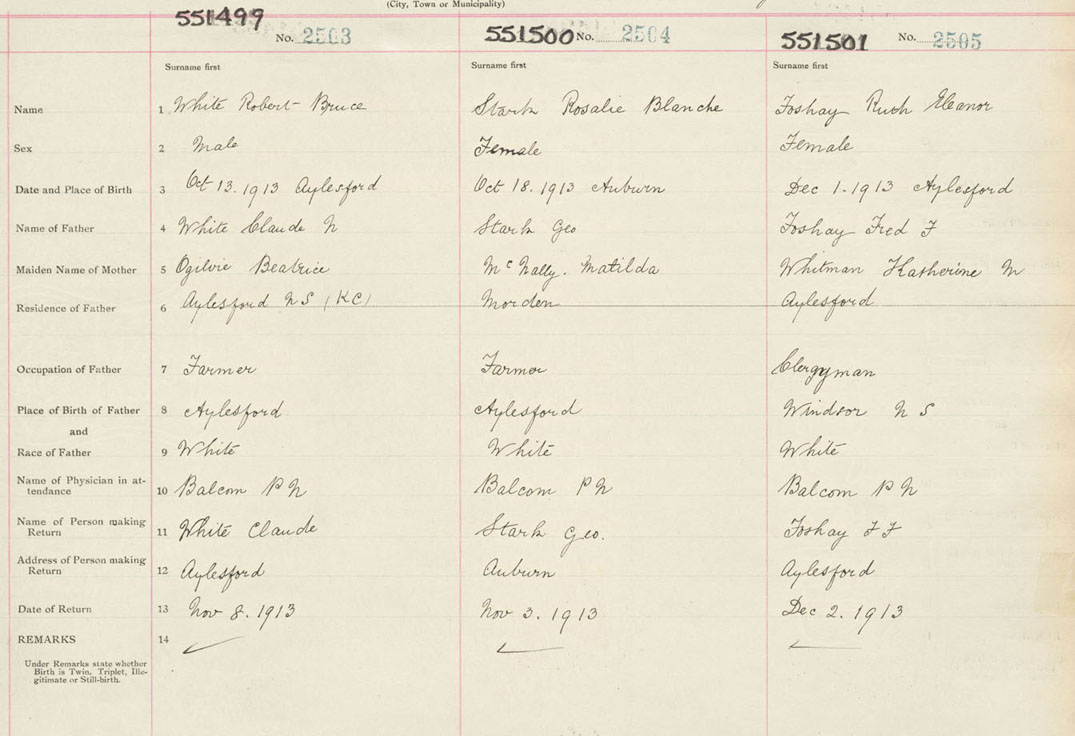 (City, Town or Municipality)
551499 No. 2503 551500 No. 2504 551501 No. 2505
Surname first Surname first Surname first
Name 1 White Robert Bruce Stark Rosalie Blanche Foshay Ruth Eleanor
Sex 2 Male Female Female
Date and Place of Birth 3 Oct 13. 1913 Aylesford Oct 18. 1913 Auburn Dec 1. 1913 Aylesford
Name of Father 4 White Claude N Stark Geo Foshay Fred F
Maiden Name of Mother 5 Ogilvie Beatrice McNally. Matilda Whitman Katherine M
Residence of Father 6 Aylesford NS (KC) Morden Aylesford
Occupation of Father 7 Farmer Farmer Clergyman
Place of Birth of Father 8 Aylesford Aylesford Windsor N S
and
Race of Father 9 White White White
Name of Physician in at-
tendance 10 Balcom P N Balcom P N Balcom P N
Name of Person making
Return 11 White Claude Stark Geo. Foshay F F
Address of Person making
Return 12 Aylesford Auburn Aylesford
Date of Return 13 Nov 8. 1913 Nov 3. 1913 Dec 2. 1913
REMARKS 14
Under Remarks state whether
Birth is Twin, Triplet, Ille-
gitimate or Still-birth.